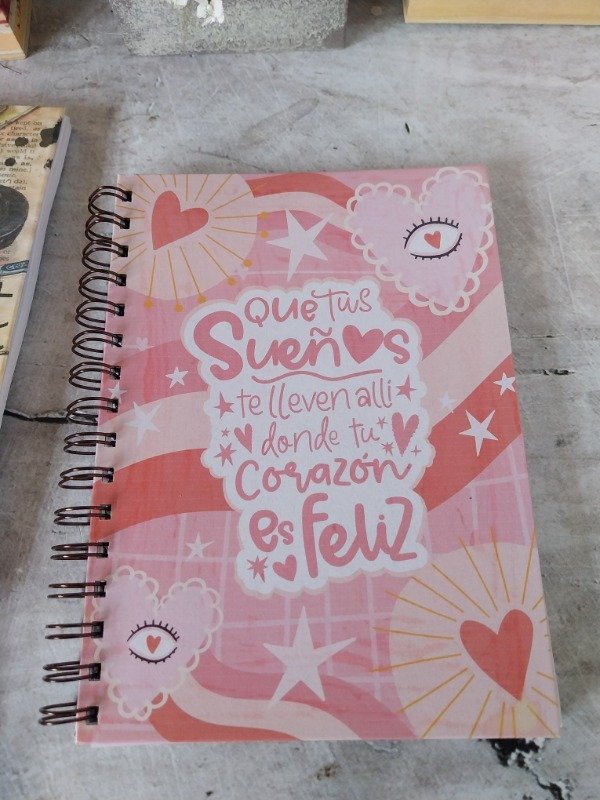 Que tus
Sueños
te lleven alli
donde tu
Corazón
es feliz